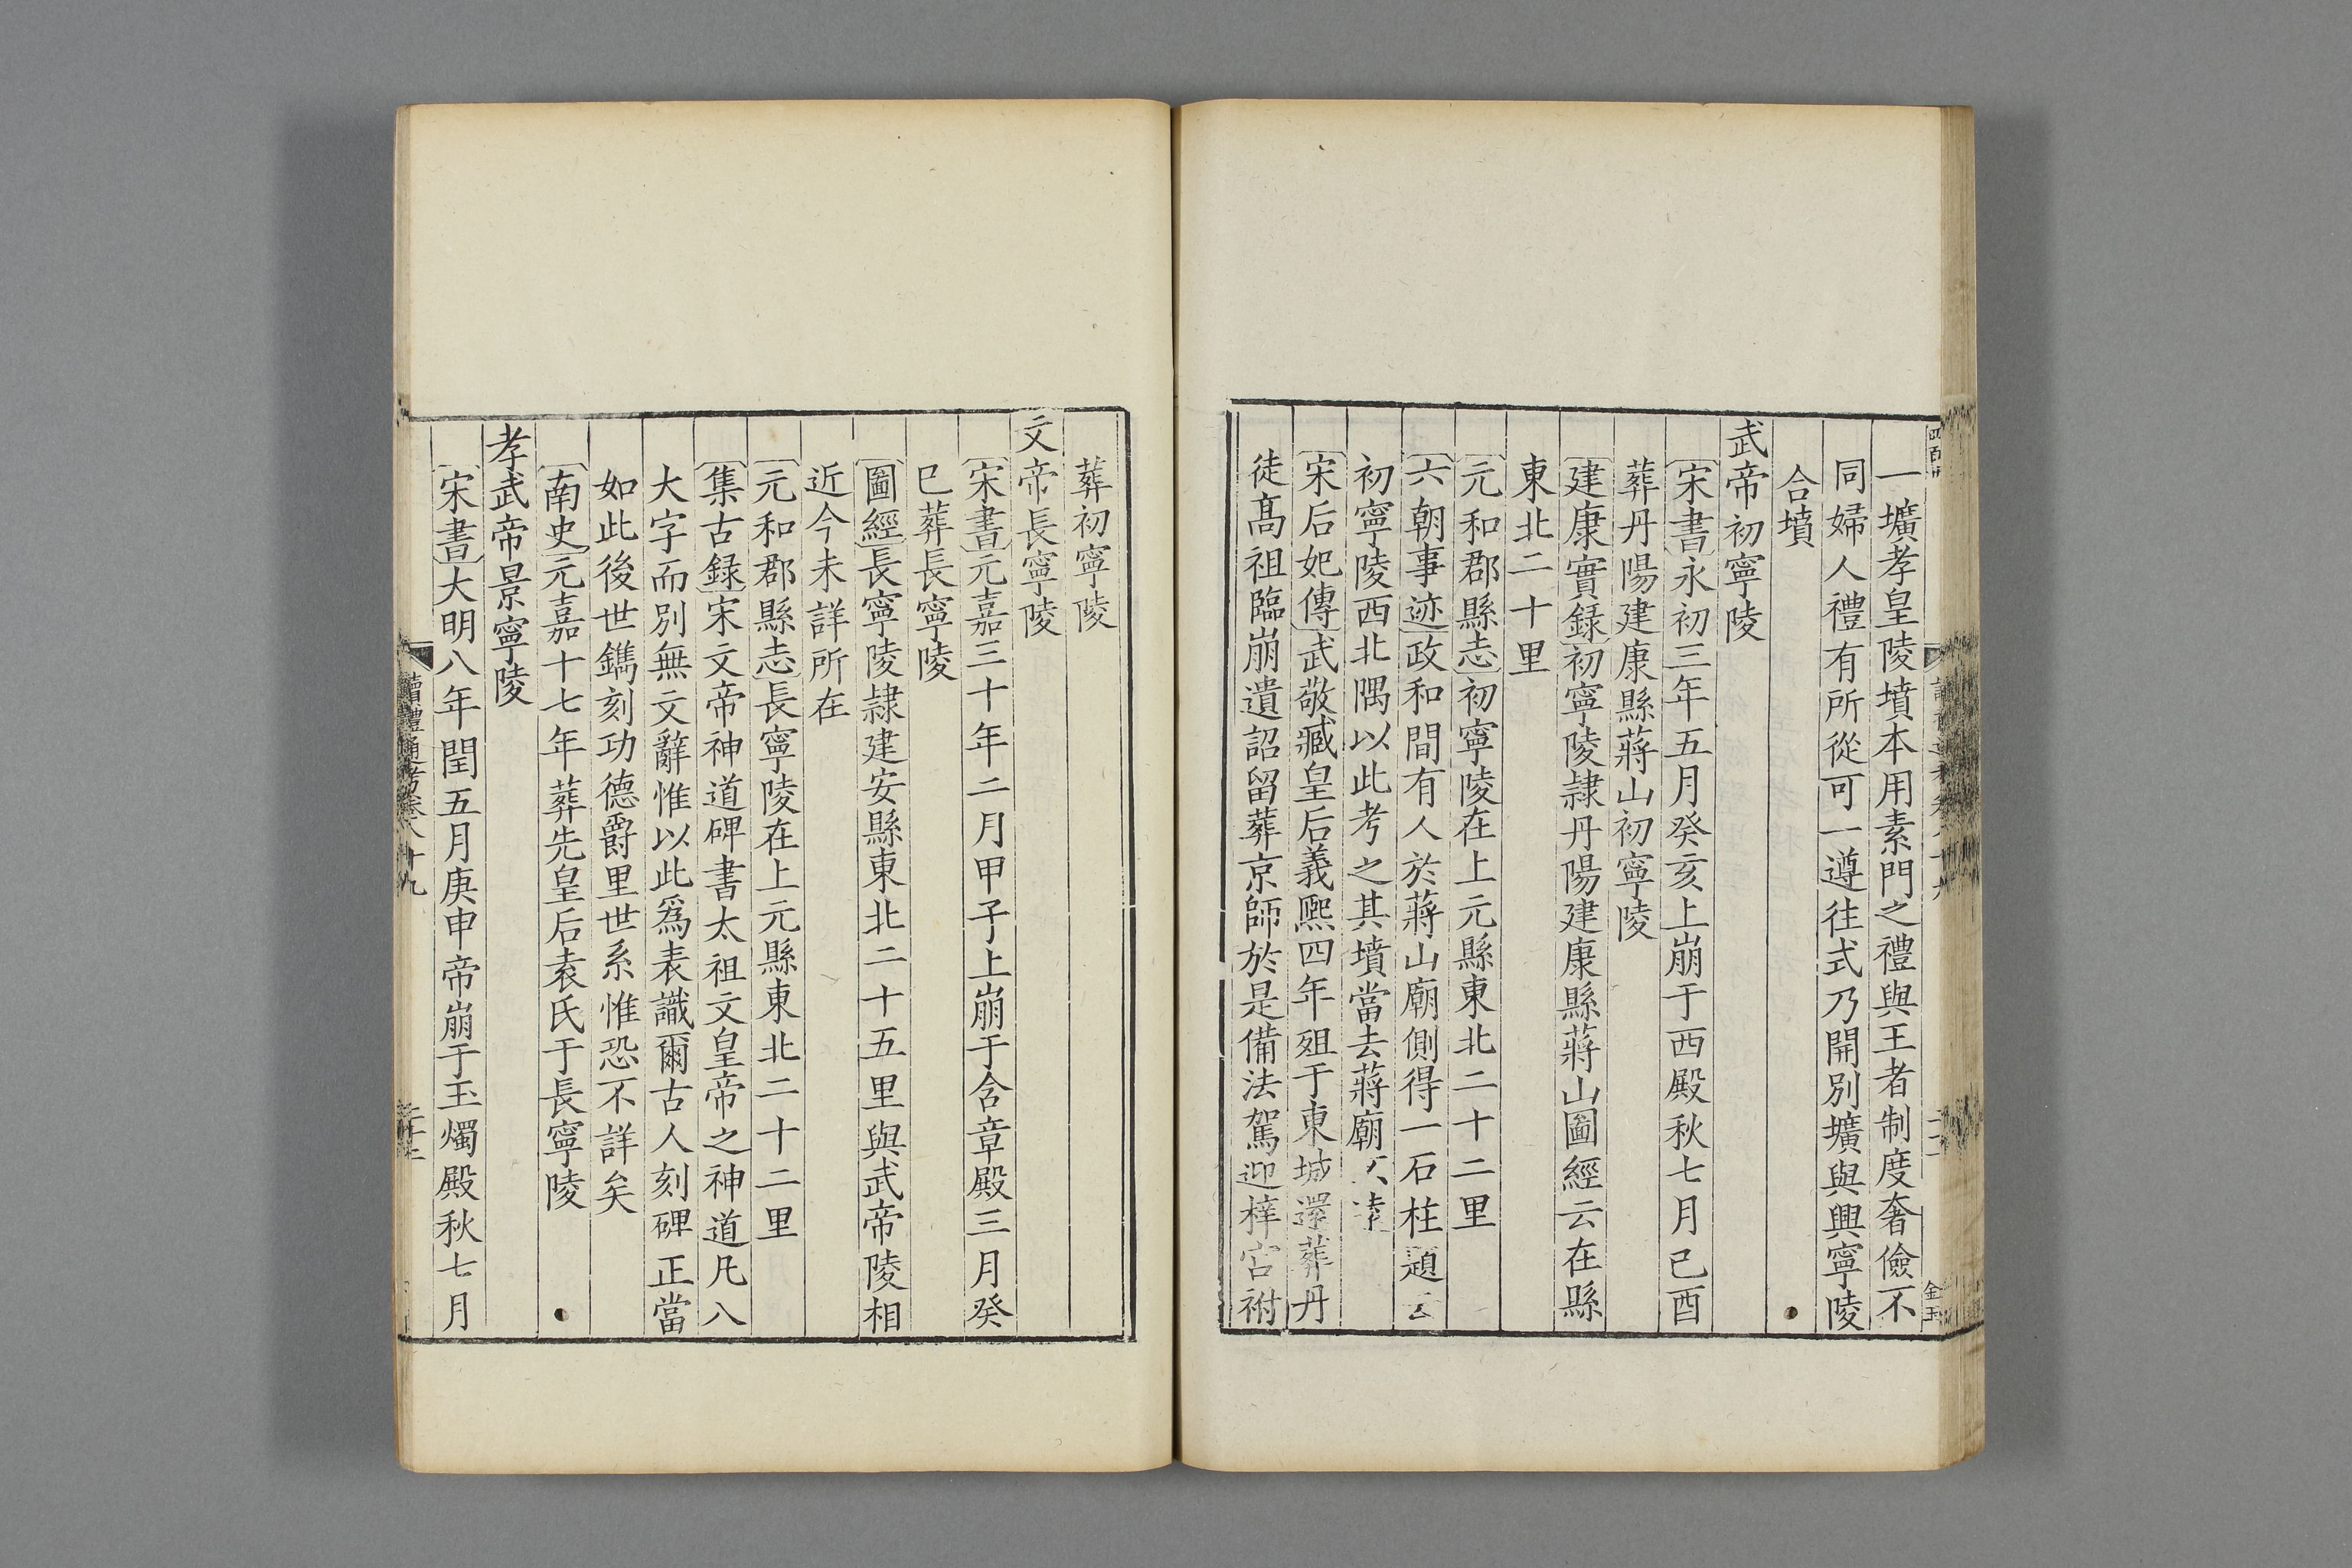 一壙孝皇陵墳本用素門之禮與王者制度奢儉不
同婦人禮有所從可一遵往式乃開別壙與興寧陵
合墳
武帝初寧陵
宋書永初三年五月癸亥上崩于西殿秋七月己酉
葬丹陽建康縣蔣山初寧陵
建康實録初寧陵隷丹陽建康縣蔣山圖經云在縣
東北二十里
元和郡縣志初寧陵在上元縣東北二十二里
六朝事迹政和間有人於蔣山廟側得一石柱題云
初寧陵西北隅以此考之其墳當去蔣廟不遠
宋后妃傳武敬臧皇后義熙四年殂于東城還葬丹
徒髙祖臨崩遺詔留葬京師於是備法駕迎梓宮祔
葬初寧陵
文帝長寧陵
宋書元嘉三十年二月甲子上崩于含章殿三月癸
巳葬長寧陵
圖經長寧陵隷建安縣東北二十五里與武帝陵相
近今未詳所在
元和郡縣志長寧陵在上元縣東北二十二里
集古録宋文帝神道碑書太祖文皇帝之神道凡八
大字而別無文辭惟以此爲表識爾古人刻碑正當
如此後世鐫刻功德爵里世系惟恐不詳矣
南史元嘉十七年葬先皇后袁氏于長寧陵
孝武帝景寧陵
宋書大明八年閏五月庚申帝崩于玉燭殿秋七月
讀禮通考卷八十九